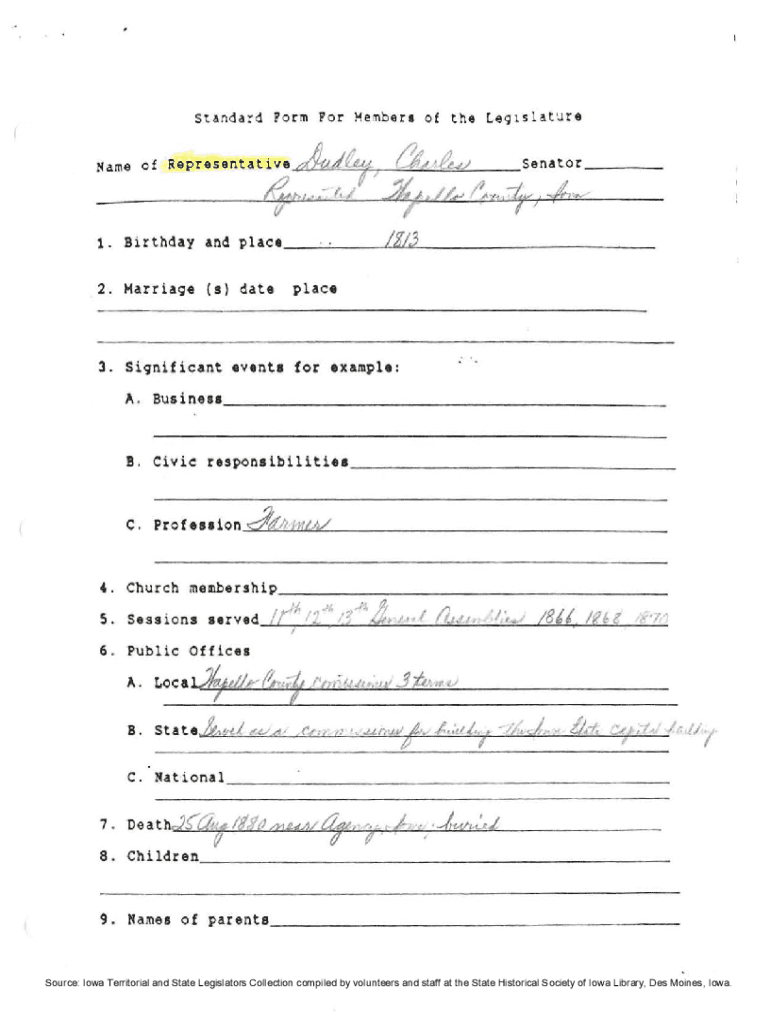 Standard Form For Members of the Legislature
Name of Representative Dudley, Charles Senator
Represented Wapello County, Iowa
1. Birthday and place 1813
2. Marriage (s) date place
3. Significant events for example:
A. Business
B. Civic responsibilities
C. Profession Farmer
4. Church membership
5. Sessions served 11th, 12th, 13th General Assemblies 1866, 1868, 1870
6. Public Offices
A. Local Wapello County commissioner 3 terms
B. State Served as a commissioner for building the Iowa State capitol building
C. National
7. Death 25 Aug 1880 near Agency, Iowa; buried
8. Children
9. Names of parents
Source: Iowa Territorial and State Legislators Collection compiled by volunteers and staff at the State Historical Society of Iowa Library, Des Moines, Iowa.